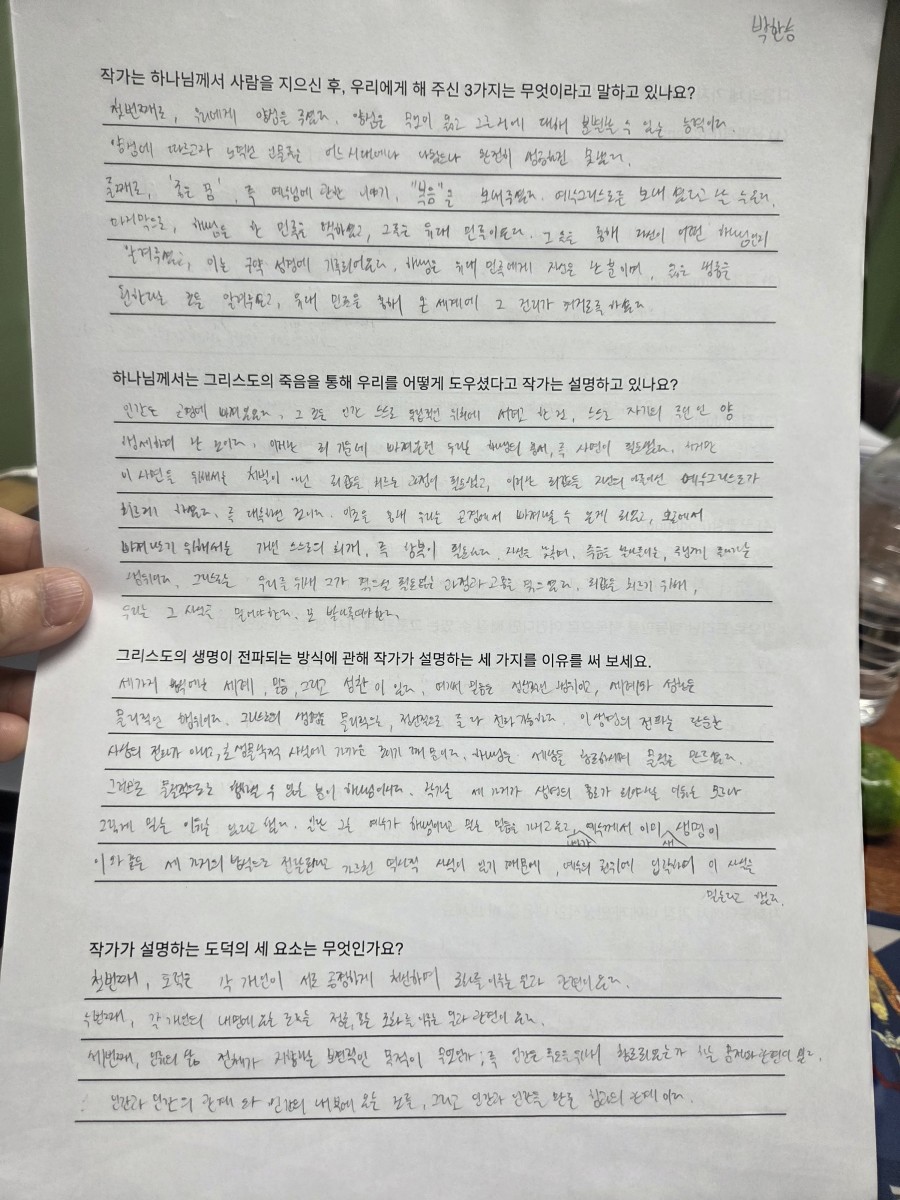 박한승
작가는 하나님께서 사람을 지으신 후, 우리에게 해 주신 3가지는 무엇이라고 말하고 있나요?
첫번째로, 우리에게 양심을 주셨다. 양심은 무엇이 옳고 그른지에 대해 분별할 수 있는 능력이다.
양심에 따르고자 노력한 인물들은 어느 시대에나 나왔으나 완전히 성공하진 못했다.
둘째로, '좋은 꿈', 즉 예수님에 관한 이야기, "복음"을 보내주셨다. 예수그리스도를 보내
마지막으로, 하나님은 한 민족을 택하셨고, 그들은 유대 민족이었다. 그들을 통해 자신이 어떤 하나님인지
알려주셨고, 이는 구약 성경에 기록되어있다. 하나님은 유대 민족에게 자신은 한 분이며, 옳은 행동을
원한다는 것을 알려주셨고, 유대 민족을 통해 온 세계에 그 진리가
하나님께서는 그리스도의 죽음을 통해 우리를 어떻게 도우셨다고 작가는 설명하고 있나요?
인간은 곤경에 빠져있었다. 그 것은 인간 스스로 독립적인 위치에 서려고 한 것, 스스로 자기의 주인인 양
행세하며 난 것이다. 이러한 죄 가운데 빠져있던 우리는 하나님의 용서, 즉 사면이 필요했다. 하지만
이 사면을 위해서는 처벌이 아닌 죄값을 치르는 과정이 필요했고, 이러한 죄값을 예수그리스도가
치르게 하셨다. 즉 대속하신 것이다. 이것을 통해 우리는 곤경에서 빠져나올 수 있게 되었고,
빠져나오기 위해서는 개인 스스로의 회개, 즉 항복이 필요하다. 자신을 낮추며, 죽음을
행위이다. 그리스도는 우리를 위해 그가 겪으실 필요없는 과정과 고통을 겪으셨다. 죄값을 치르기 위해,
우리는 그 사실을 믿어야한다. 또 받아들여야한다.
그리스도의 생명이 전파되는 방식에 관해 작가가 설명하는 세 가지를 이유를 써 보세요.
세가지 방식에는 세례, 믿음, 그리고 성찬이 있다. 여기서 믿음은 정신적인 행위이고, 세례와 성찬은
물리적인 행위이다. 그리스도의 생명은 물리적으로, 정신적으로 둘 다 전파가능하다. 이 생명의 전파는 단순한
사상의 전파가 아니고, 생물학적 사실에 가까운 것이기 때문이다. 하나님은 세상을 창조하시며 물질을 만드셨다.
그러므로 물질적으로도 행하실 수 있는 분이 하나님이시다. 작가는 세 가지가 생명의 통로가 되어야하는 이유는 모르나
그렇게 믿는 이유는 있다고 했다. 일단 그는 예수가 하나님이라고 믿는 믿음을 가지고 있고, 예수께서 이미 생명이
새
이와 같은 세 가지의 방식으로 전달된다고 가르친 역사적 사실이 있기 때문에, 예수의 권위에 입각하여 이 사실을
믿는다고 했다.
작가가 설명하는 도덕의 세 요소는 무엇인가요?
첫번째, 도덕은 각 개인이 서로 공정하게 처신하며 조화를 이루는 것과 관련이 있다.
두번째, 각 개인의 내면에 있는 것들을 정돈, 혹은 조화를 이루는 것과 관련이 있다.
세번째, 인류의 삶 전체가 지향하는 보편적인 목적이 무엇인가; 즉 인간은 무엇을 위하여 창조되었는가 하는 문제와 관련이 있다.
∴ 인간과 인간의 관계와 인간의 내부에 있는 것들, 그리고 인간과 인간을 만든 힘과의 관계이다.